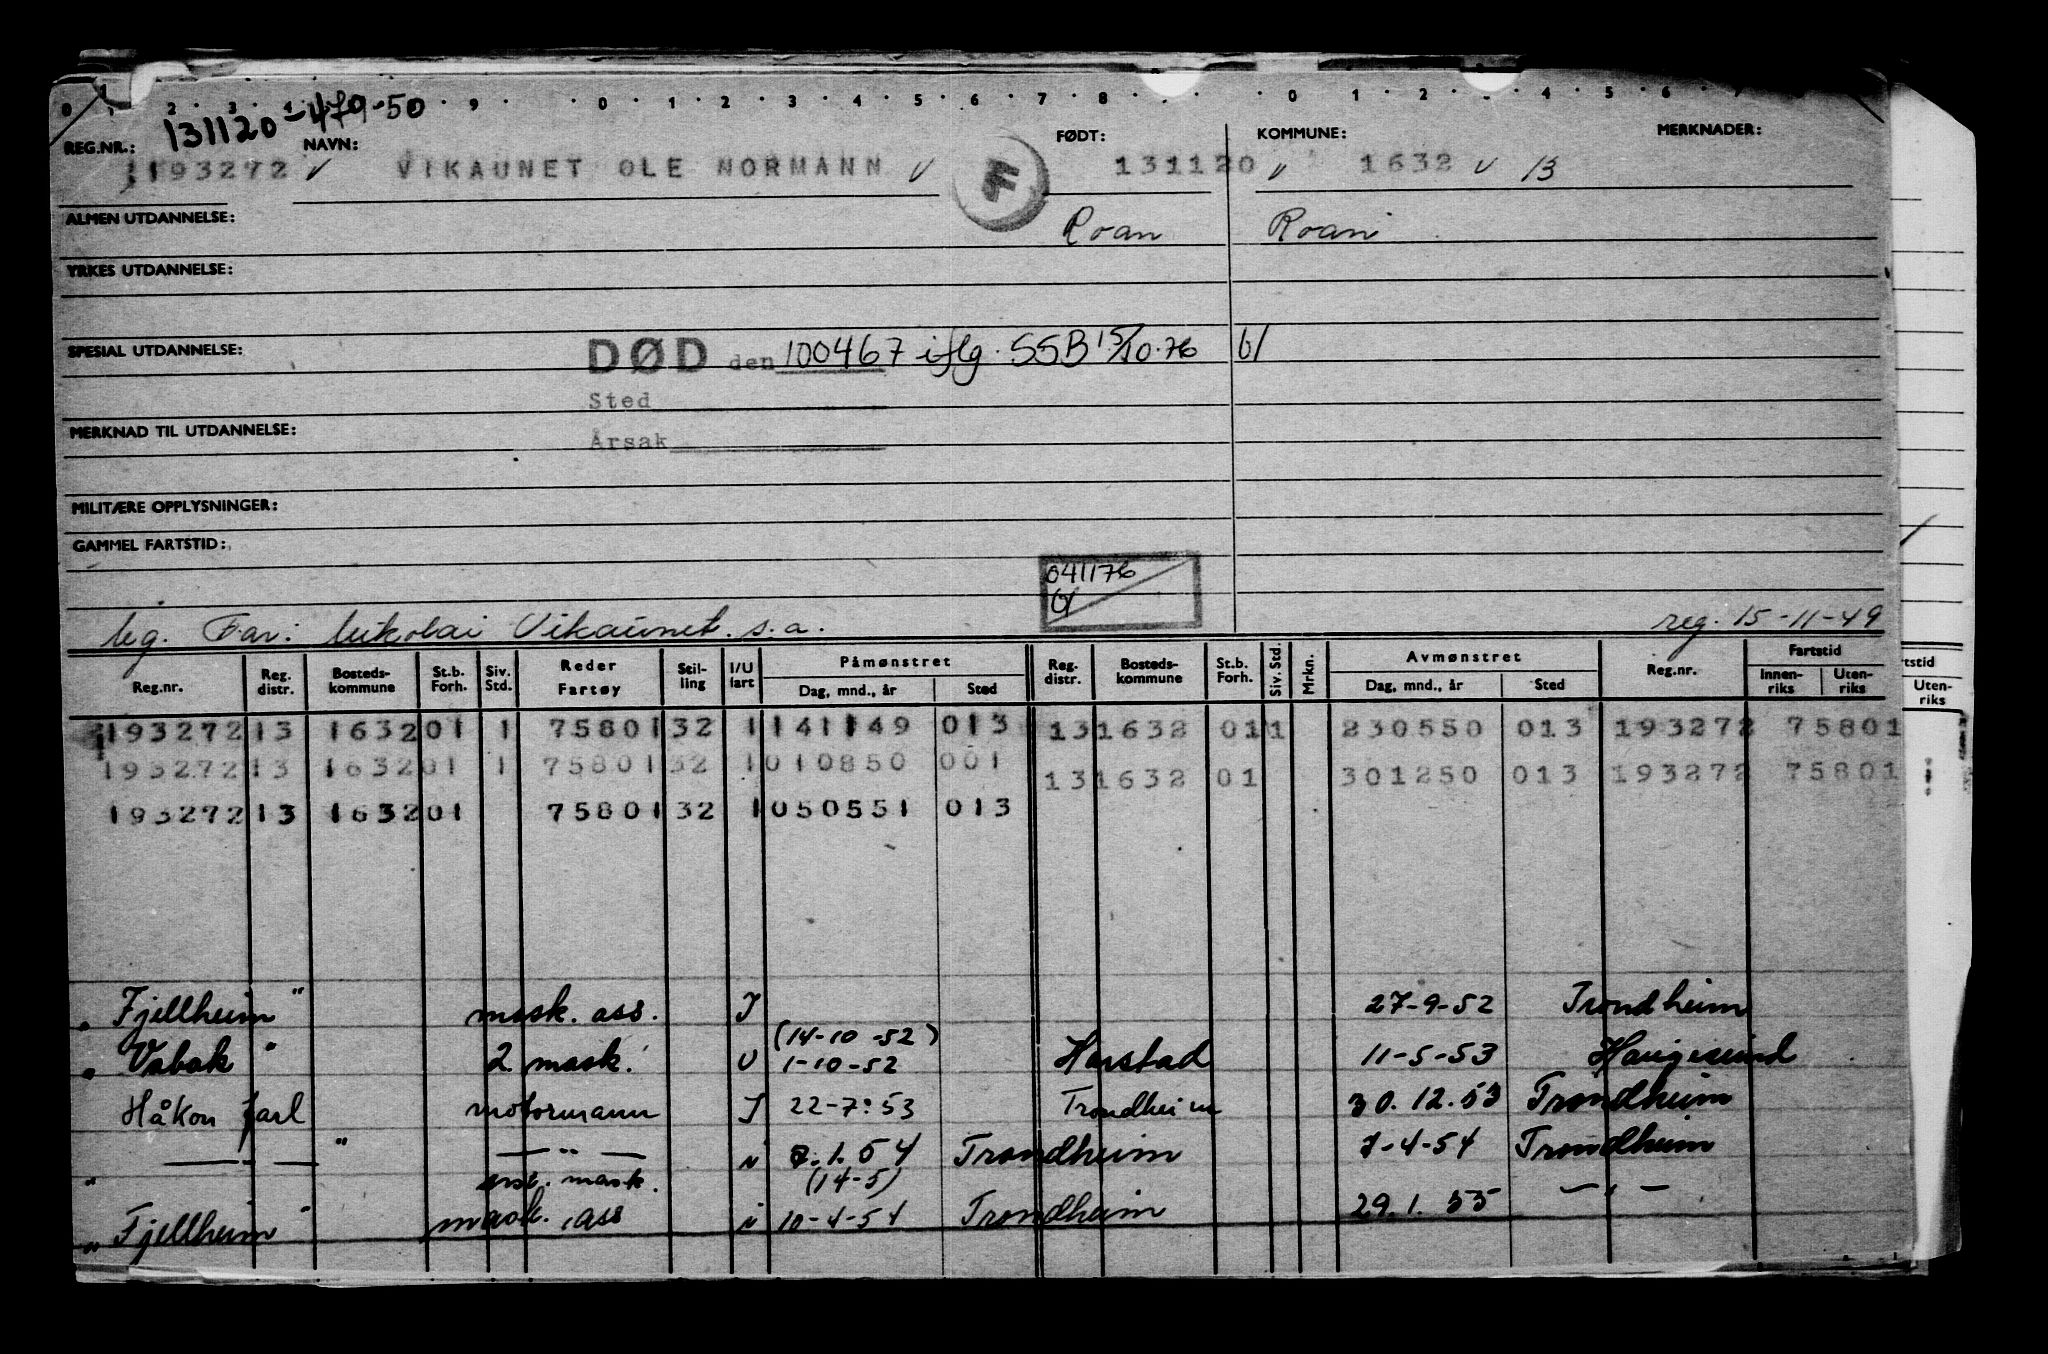 0 1 2 3 4 9 0 1 2 3 4 5 6 7 8 0 1 2 3 4 5 6 7
131120-479-50
REG.NR.: NAVN: FØDT: KOMMUNE: MERKNADER:
193272 v VIKAUNET OLE NORMANN v F 131120 v 1632 v 13
ALMEN UTDANNELSE: Roan Roan
YRKES UTDANNELSE:
SPESIAL UTDANNELSE: DØD den 100467 iflg. SSB 15/10.76
Sted
MERKNAD TIL UTDANNELSE:
Årsak
MILITÆRE OPPLYSNINGER:
GAMMEL FARTSTID:
041176
ug. Far: Nikolai Vikaunet. s.a. reg. 15-11-49
Reg.nr. Reg. distr. Bosteds-kommune St.b. Forh. Siv. Std. Reder Fartøy Stil-ling I/U fart Påmønstret Dag, mnd., år Sted Reg. distr. Bosteds-kommune St.b. Forh. Siv. Std. Mrkn. Avmønstret Dag, mnd., år Sted Reg.nr. Fartstid Innen-riks Uten-riks
tstid
Uten-riks
193272 13 1632 01 1 75801 32 1 141149 013 13 1632 01 1 230550 013 193272 75801
193272 13 1632 01 1 75801 32 1 010850 001 13 1632 01 301250 013 193272 75801
193272 13 1632 01 75801 32 1 050551 013
" Fjellheim " mask. ass. I 27-9-52 Trondheim
(14-10-52)
" Vabak " 2 mask. U 1-10-52 Harstad 11-5-53 Haugesund
Håkon Jarl motormann I 22-7-53 Trondheim 30.12.53 Trondheim
— " — — " — i 7.1.54 Trondheim 7-4-54 Trondheim
" mask. (14-5)
" Fjellheim " mask. ass i 10-4-54 Trondheim 29.1.55 — " —